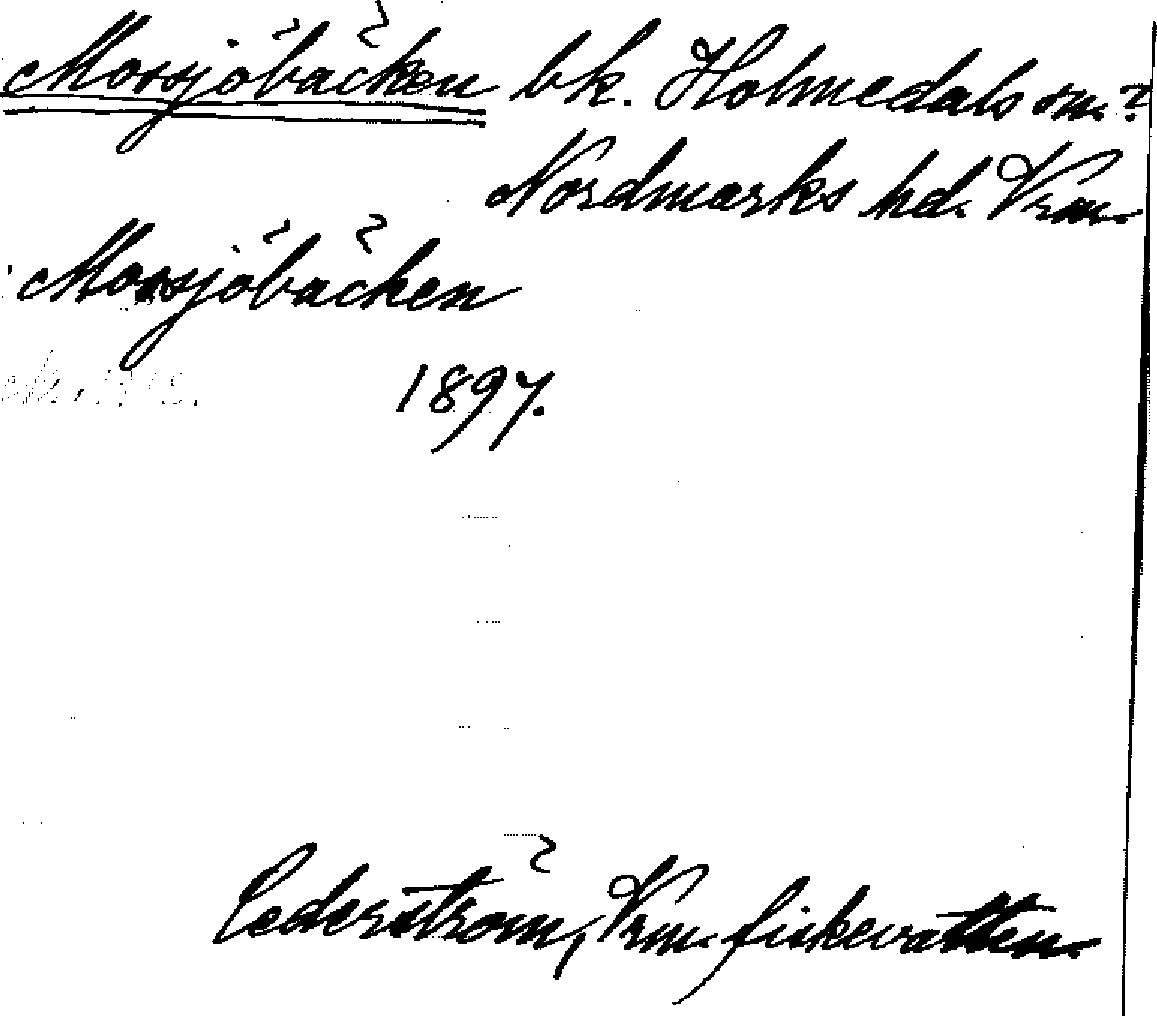 Morsjöbäcken bk. Holmedals sn.?
Nordmarks hd. Vrm.
Morsjöbäcken
1897.
Cederström, Vrm. fiskevatten.